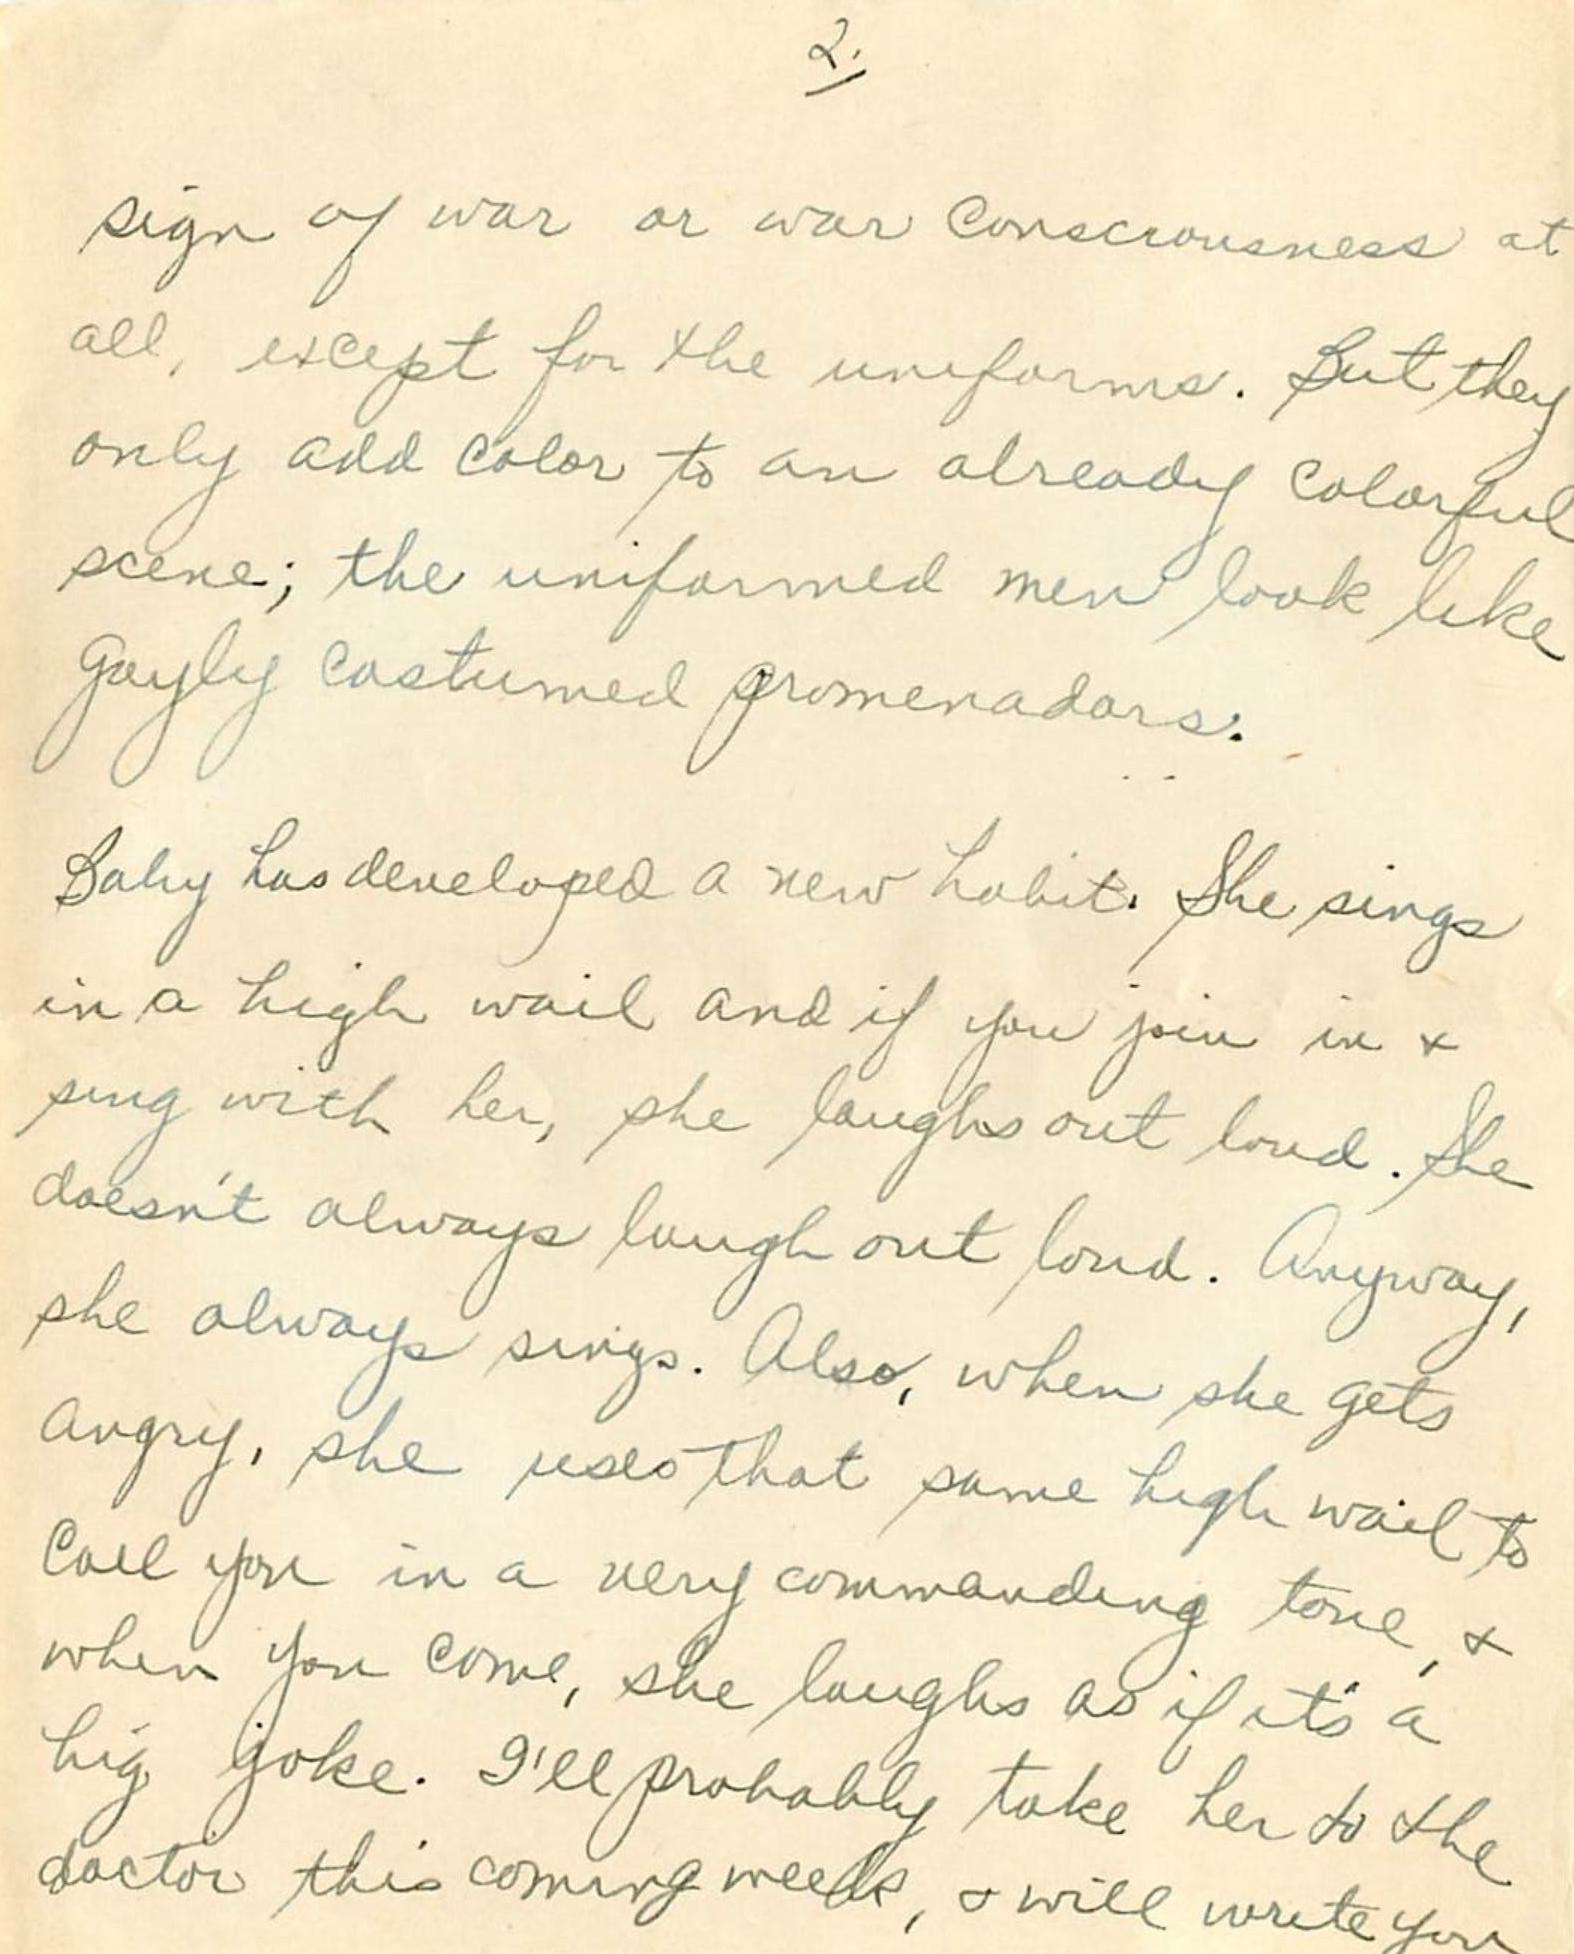 2.
sign of war or war consciousness at
all, except for the uniforms. But they
only add color to an already colorful
scene; the uniformed men look like
gayly costumed promenadors.
Baby has developed a new habit. She sings
in a high wail and if you join in &
sing with her, she laughs out loud. She
doesn't always laugh out loud. Anyway,
she always sings. Also, when she gets
angry, she uses that same high wail to
call you in a very commanding tone, &
when you come, she laughs as if it's a
big joke. I'll probably take her to the
doctor this coming week, & will write you